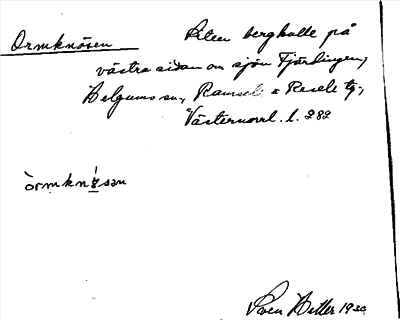 Ormknösen
Liten bergkulle på
västra sidan om sjön Fjärdingen,
Helgums sn, Ramsele o Resele tg,
Västernorrl. l. 282
òrmknösən
Sven Hetler 1930